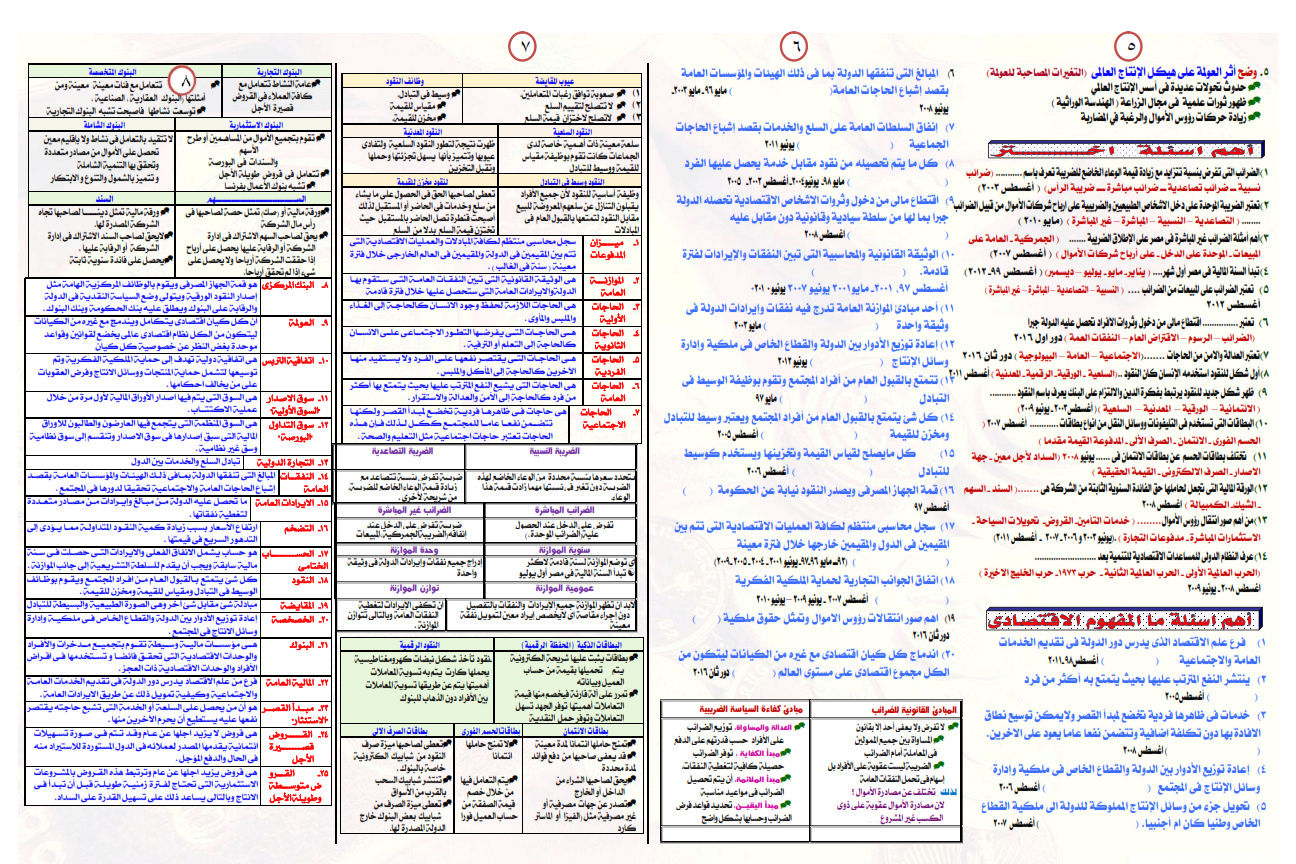 ٥
٥. وضح أثر العولة على هيكل الإنتاج العالمى (التغيرات المصاحبة للعولة)
حدوث تحولات عديدة فى أسس الإنتاج العالى
ظهور ثورات علمية فى مجال الزراعة (الهندسة الوراثية)
زيادة حركات رؤوس الأموال والرغبة في المضاربة
أهم اسئلة اختر
١) الضرائب التى تفرض بنسبة تتزايد مع زيادة قيمة الوعاء الخاضع للضريبة تعرف باسم .......... (ضرائب
نسبية ـ ضرائب تصاعدية ـ ضرائب مباشرة ـ ضريبة الرأس) (أغسطس ٢٠٠٢)
٢) تعتبر الضريبة الموحدة على دخل الأشخاص الطبيعيين والضريبية على ارباح شركات الأموال من قبيل الضرائب
....... (التصاعدية - النسبية - المباشرة - غير المباشرة) (مايو ٢٠١٠)
٣) اهم أمثلة الضرائب غير المباشرة فى مصر على الإطلاق الضريبة ....... (الجمركية - العامة على
المبيعات - الموحدة على الدخل - على أرباح شركات الأموال) (أغسطس ٢٠٠٧)
٤) تبدأ السنة المالية فى مصر اول شهر..... (يناير - مايو - يوليو - ديسمبر) (أغسطس ٩٩ـ ٢٠١٢)
٥) تعتبر الضرائب على المبيعات من الضرائب .... (النسبية - التصاعدية - المباشرة - غير المباشرة)
أغسطس ٢٠١٢
٦) تعتبر................ اقتطاع مالى من دخول وثروات الأفراد تحصل عليه الدولة جبرا
(الضرائب - الرسوم - الاقتراض العام - النفقات العمة) دور اول ٢٠١٦
٧) تعتبر العدالة والامن من الحاجات .......(الاجتماعية - العامة - البيولوجية) دور ثان ٢٠١٦
٨) أول شكل للنقود استخدمه الإنسان كان النقود ...(السلعية - الورقية - الرقمية - المعدنية) أغسطس ٢٠١١
٩) ظهر شكل جديد للنقود يرتبط بفكرة الدين والالتزام على البنك يعرف باسم النقود ...........
(الائتمانية - الورقية - المعدنية - السلعية) (أغسطس ٢٠٠٢ ـ يونيو ٢٠٠٩)
١٠) البطاقات التى تستخدم فى التليفونات ووسائل النقل من انواع بطاقات........... أغسطس ٢٠٠٧ (
الحسم الفورى - الائتمان - الصرف الألى - المدفوعة القيمة مقدما)
١١) تختلف بطاقات الحسم عن بطاقات الائتمان فى ...... يونيو ٢٠٠٨ (السداد لأجل معين - جهة
الاصدار - الصرف الالكترونى - القيمة الحقيقية)
١٢) الورقة المالية التى تجعل لحاملها حق الفائدة السنوية الثابتة من الشركة هى .......( السند - السهم
- الشيك - الكمبيالة) أغسطس ٢٠٠٨
١٣) من أهم صور انتقال رؤوس الأموال ........ ( خدمات التامين - القروض - تحويلات السياحة -
الاستثمارات المباشرة - مدفوعات التجارة).(يونيو ٢٠٠٣ و٢٠٠٦ و٢٠٠٧ - أغسطس ٢٠١١)
١٤) عرف النظام الدولى للمساعدات الاقتصادية للتنمية بعد .................
(الحرب العالمية الأولى - الحرب العالمية الثانية - حرب ١٩٧٣ - حرب الخليج الاخيرة)
أغسطس ٢٠٠٨ ـ يونيو ٢٠٠٩
أهم اسئلة ما المفهوم الاقتصادى
١) فرع علم الاقتصاد الذى يدرس دور الدولة فى تقديم الخدمات
العامة والاجتماعية ( ) أغسطس٩٨ـ٢٠١١
٢) ينتشر النفع المترتب عليها بحيث يتمتع به أكثر من فرد
( ) أغسطس٢٠٠٥
٣) خدمات فى ظاهرها فردية تخضع لمبدأ القصر ولايمكن توسيع نطاق
الافادة بها دون تكلفة اضافية وتتضمن نفعا عاما يعود على الآخرين.
( ) أغسطس ٢٠٠٨
٤) إعادة توزيع الأدوار بين الدولة والقطاع الخاص فى ملكية وإدارة
وسائل الإنتاج فى المجتمع ( ) أغسطس ٢٠٠٦
٥) تحويل جزء من وسائل الإنتاج المملوكة للدولة الى ملكية القطاع
الخاص وطنيا كان ام أجنبيا. ( ) أغسطس ٢٠٠٧
٦
٦) المبالغ التى تنفقها الدولة بما فى ذلك الهيئات والمؤسسات العامة
بقصد إشباع الحاجات العامة( ) مايو ٩٦ـ مايو ٢٠٠٢ـ
يونيو ٢٠٠٨
٧) إنفاق السلطات العامة على السلع والخدمات بقصد إشباع الحاجات
الجماعية ( ) يونيو ٢٠١١
٨) كل ما يتم تحصيله من نقود مقابل خدمة يحصل عليها الفرد
( ) مايو ٩٨ـ يونيو٢٠٠٤ـ أغسطس ٢٠٠٢ـ ٢٠٠٥
٩) اقتطاع مالى من دخول وثروات الأشخاص الاقتصادية تحصله الدولة
جبرا بما لها من سلطة سيادية وقانونية دون مقابل عليه
( ) أغسطس ٢٠٠٨
١٠) الوثيقة القانونية والمحاسبية التى تبين النفقات والإيرادات لفترة
قادمة. ( )
أغسطس ٩٧ـ ٢٠٠١ـ مايو٢٠٠١ يونيو ٢٠٠٧ يونيو ٢٠١٠
١١) أحد مبادئ الموازنة العامة تدرج فيه نفقات وايرادات الدولة فى
وثيقة واحدة ( ) مايو ٢٠٠٢
١٢) إعادة توزيع الأدوار بين الدولة والقطاع الخاص فى ملكية وإدارة
وسائل الإنتاج ( ) يونيو ٢٠١٢
١٣) تتمتع بالقبول العام من أفراد المجتمع وتقوم بوظيفة الوسيط فى
التبادل ( ) مايو ٩٧
١٤) كل شئ يتمتع بالقبول العام من أفراد المجتمع ويعتبر وسيط للتبادل
ومخزن للقيمة ( ) أغسطس ٢٠٠٥
١٥) كل مايصلح لقياس القيمة وتخزينها ويستخدم كوسيط
للتبادل ( ) أغسطس ٢٠٠٦
١٦) قمة الجهاز المصرفى ويصدر النقود نيابة عن الحكومة ( )
أغسطس ٩٧
١٧) سجل محاسبى منتظم لكافة العمليات الاقتصادية التى تتم بين
المقيمين فى الدول والمقيمين خارجها خلال فترة معينة
( ) (٩٢ـ مايو ٩٦ـ٩٧ـ يونيو ٢٠٠١ـ ٢٠٠٤ـ٢٠٠٥ـ ٢٠٠٩)
١٨) اتفاق الجوانب التجارية لحماية الملكية الفكرية
( ) أغسطس ٢٠٠٧ ـ يونيو ٢٠٠٩ ـ يونيو ٢٠١٠
١٩) أهم صور انتقالات رؤوس الاموال وتمثل حقوق ملكية ( )
دور ثان ٢٠١٦
٢٠) اندماج كل كيان اقتصادى مع غيره من الكيانات ليتكون من
الكل مجموع اقتصادى على مستوى العالم ( ) دور ثان ٢٠١٦
المبادئ القانونية للضرائب
لا تفرض ولا يعفى أحد إلا بقانون
المساواة بين جميع الممولين
فى المعاملة أمام الضرائب
الضريبة ليست عقوبة على الأفراد بل
إسهام فى تحمل النفقات العامة
لذلك تختلف عن مصادرة الأموال؟
لان مصادرة الأموال عقوبة على ذوى
الكسب غير المشروع
مبادئ كفاءة السياسة الضريبية
العدالة والمساواة. توزيع الضرائب
على الأفراد حسب قدرتهم على الدفع
مبدأ الكفاية. توفر الضرائب
حصيلة كافية لتغطية النفقات.
مبدأ الملائمة. أن يتم تحصيل
الضرائب فى مواعيد مناسبة
مبدأ اليقين. تحديد قواعد فرض
الضرائب وحسابها بشكل واضح
٧
عيوب المقايضة
١) صعوبة توافق رغبات المتعاملين.
٢) لا تصلح لتقييم السلع
٣) لاتصلح لاختزان قيمة السلع
وظائف النقود
وسيط فى التبادل.
مقياس للقيمة
مخزن للقيمة.
النقود السلعية
سلعة معينة ذات أهمية خاصة لدى
الجماعات كانت تقوم بوظيفة مقياس
للقيمة ووسيط للتبادل
النقود المعدنية
ظهرت نتيجة لتطور النقود السلعية ولتفادى
عيوبها وتتميز بأنها يسهل تجزئتها وحملها
وتقبل التخزين
النقود وسيط فى التبادل
وظيفة أساسية للنقود لأن جميع الأفراد
يقبلون التنازل عن سلعهم المعروضة للبيع
مقابل النقود لتمتعها بالقبول العام فى
المبادلات
النقود مخزن للقيمة
تعطى لصاحبها الحق فى الحصول على ما يشاء
من سلع وخدمات فى الحاضر أو المستقبل لذلك
أصبحت قنطرة تصل الحاضر بالمستقبل حيث
تختزن قيمة السلع بدلا من السلع
١ـ ميزان المدفوعات
سجل محاسبى منتظم لكافة المبادلات والعمليات الاقتصادية التى
تتم بين المقيمين فى الدولة والمقيمين فى العالم الخارجى خلال فترة
معينة (سنة فى الغالب).
٢ـ الموازنة العامة
هى الوثيقة القانونية التى تبين النفقات العامة التى ستقوم بها
الدولة والايرادات العامة التى ستحصل عليها خلال فترة قادمة
٣ـ الحاجات الأولية
هى الحاجات اللازمة لحفظ وجود الانسان كالحاجة إلى الغذاء
والملبس والمأوى.
٤ـ الحاجات الثانوية
هى الحاجات التى يفرضها التطور الاجتماعى على الانسان
كالحاجة إلى التعلم أو الترفية.
٥ـ الحاجات الفردية
هى الحاجات التى يقتصر نفعها على الفرد ولا يستفيد منها
الآخرين كالحاجة إلى المأكل والملبس.
٦ـ الحاجات العامة
هى الحاجات التى يشيع النفع المترتب عليها بحيث يتمتع بها أكثر
من فرد كالحاجة إلى الأمن والعدالة والاستقرار.
٧ـ الحاجات الاجتماعية
هى حاجات فى ظاهرها فردية تخضع لمبدأ القصر ولكنها
تتضمن نفعا عاما للمجتمع ككل لذلك فان هذه
الحاجات تعتبر حاجات اجتماعية مثل التعليم والصحة.
الضريبة النسبية
تتحدد سعرها بنسبة محددة من الوعاء الخاضع لهذه
الضريبة دون تغير فى نسبتها مهما زادت قيمة هذا
الوعاء
الضريبة التصاعدية
ضريبة تفرض بنسبة تتصاعد مع
زيادة قيمة الوعاء الخاضع للضريبة.
من شريحة لأخرى.
الضرائب المباشرة
تفرض على الدخل عند الحصول
عليه (الضرائب الموحدة).
الضرائب غير المباشرة
ضريبة تفرض على الدخل عند
إنفاقه(الضريبة الجمركية- المبيعات
سنوية الموازنة
اى توضع الموازنة لسنة قادمة لا أكثر
تبدأ السنة المالية فى مصر أول يوليو
وحدة الموازنة
إدراج جميع نفقات وايرادات الدولة فى وثيقة
واحدة
عمومية الموازنة
لابد ان تظهر الموازنة جميع الإيرادات والنفقات بالتفصيل
دون إجراء مقاصة اى لايخصص ايراد معين لتمويل نفقة
معينة
توازن الموازنة
أن تكفى الإيرادات لتغطية
النفقات العامة وبالتالى تتوازن
الموازنة.
البطاقات الذكية (المحفظة الرقمية)
بطاقات يثبت عليها شريحة الكترونية
يتم تحميلها بقيمة من حساب
العميل وبياناته
تمرر على آلة قارئة فيخصم منها قيمة
التعاملات أهميتها توفر الجهد تسهل
التعاملات وتوفر حمل النقدية
النقود الرقمية
نقود تأخذ شكل نبضات كهرومغناطيسية
يحملها كارت يتم به تسوية المعاملات
أهميتها يتم عن طريقها تسوية المعاملات
بين الأفراد دون الذهاب للبنوك
بطاقات الائتمان
تمنح حاملها ائتمانا لمدة معينة
قد يعفى صاحبها من دفع فوائد
لمدة محددة
يحق لصاحبها الشراء من
الداخل أو الخارج
تصدر عن جهات مصرفية أو
غير مصرفية مثل (الفيزا أو الماستر
كارد
بطاقات الحسم الفورى
ولا تمنح حاملها
ائتمانا
ويتم التعامل فيها
من خلال خصم
قيمة الصفقة من
حساب العميل فورا
بطاقات الصرف الالى
تعطى لصاحبها ميزة صرف
النقود من شبابيك الكترونية
خاصة بالبنوك.
تنتشر شبابيك السحب
بالقرب من الأسواق
تعطى ميزة الصرف من
شبابيك بعض البنوك خارج
الدولة المصدرة لها.
٨
البنوك التجارية
عامة النشاط تتعامل مع
كافة العملاء فى القروض
قصيرة الأجل
البنوك المتخصصة
تتعامل مع فئات معينة معينة ومن
أمثلتها (البنوك العقارية. الصناعية.
توسعت نشاطها فاصبحت تشبه البنوك التجارية
البنوك الاستثمارية
تقوم بتجميع الأموال من المساهمين أو طرح
الأسهم
والسندات فى البورصة
تتعامل فى قروض طويلة الأجل
تشبه بنوك الأعمال بفرنسا
البنوك الشاملة
لا تتقيد بالتعامل فى نشاط ولا باقليم معين
تحصل على الأموال من مصادر متعددة
وتحقق بها التنمية الشاملة
وتتميز بالشمول والتنوع والابتكار
السهم
ورقة مالية أو (صك) تمثل حصة لصاحبها فى
رأس مال الشركة
يحق لصاحب السهم الاشتراك فى ادارة
الشركة أو الرقابة عليها يحصل على أرباح
إذا حققت الشركة أرباحا ولا يحصل على
شئ إذا لم تحقق أرباحا.
السند
ورقة مالية تمثل دينا لصاحبها تجاه
الشركة المصدرة لها.
لايحق لصاحب السند الاشتراك فى إدارة
الشركة أو الرقابة عليها.
يحصل على فائدة سنوية ثابتة
٨ـ البنك المركزى
هو قمة الجهاز المصرفى ويقوم بالوظائف المركزية الهامة مثل
إصدار النقود الورقية ويتولى وضع السياسة النقدية فى الدولة
والرقابة على البنوك ويطلق عليه بنك الحكومة وبنك البنوك.
٩ـ العولة
ان كل كيان اقتصادى يتكامل ويندمج مع غيره من الكيانات
ليتكون من الكل نظام اقتصادى عالمى يخضع لقوانين وقواعد
موحدة بغض النظر عن خصوصية كل كيان
١٠ـ اتفاقية التربس
هى اتفاقية دولية تهدف إلى حماية الملكية الفكرية وتم
توسيعها لتشمل حماية المنتجات ووسائل الانتاج وفرض العقوبات
على من يخالف احكامها.
١١ـ سوق الاصدار "السوق الأولية"
هى السوق التى يتم فيها اصدار الأوراق المالية لأول مرة من خلال
عملية الاكتتاب.
١٢ـ سوق التداول "البورصة"
هى السوق المنظمة التى يتجمع فيها العارضون والطالبون للأوراق
المالية التى سبق إصدارها فى سوق الاصدار وتنقسم إلى سوق نظامية
وسوق غير نظامية.
١٣ـ التجارة الدولية
تبادل السلع والخدمات بين الدول
١٤ـ النفقات العامة
المبالغ التى تنفقها الدولة بما فى ذلك الهيئات والمؤسسات العامة بقصد
إشباع الحاجات العامة والاجتماعية تحقيقا لدورها فى المجتمع.
١٥ـ الايرادات العامة
ما تحصل عليه الدولة من مبالغ وايرادات من مصادر متعددة
لتغطية نفقاتها.
١٦ـ التضخم
ارتفاع الأسعار بسبب زيادة كمية النقود المتداولة مما يؤدى إلى
التدهور السريع فى قيمتها.
١٧ـ الحساب الختامى
هو حساب يشمل الانفاق الفعلى والايرادات التى حصلت فى سنة
مالية سابقة ويجب أن يقدم للسلطة التشريعية إلى جانب الموازنة.
١٨ـ النقود
كل شئ يتمتع بالقبول العام من أفراد المجتمع ويقوم بوظائف
الوسيط فى التبادل ومقياس للقيمة ومخزن للقيمة.
١٩ـ المقايضة
مبادلة شئ مقابل شئ آخر وهى الصورة الطبيعية والبسيطة للتبادل
٢٠ـ الخصخصة
اعادة توزيع الأدوار بين الدولة والقطاع الخاص فى ملكية وإدارة
وسائل الانتاج فى المجتمع.
٢١ـ البنوك
هى مؤسسات مالية وسيطة تقوم بتجميع مدخرات والأفراد
والوحدات الاقتصادية التى تحقق فائضا وتستخدمها فى اقراض
الأفراد والوحدات الاقتصادية ذات العجز.
٢٢ـ المالية العامة
فرع من علم الاقتصاد يدرس دور الدولة فى تقديم الخدمات العامة
والاجتماعية وكيفية تمويل ذلك عن طريق الايرادات العامة.
٢٣ـ مبدأ القصر "الاستئثار"
هو أن من يحصل على السلعة أو الخدمة التى تشبع حاجته يقتصر
نفعها عليه يستطيع أن يحرم الآخرين منها.
٢٤ـ القروض قصيرة الأجل
هى قروض لا يزيد اجلها عن عام وقد تتم فى صورة تسهيلات
ائتمانية يقدمها المصدر لعملائه فى الدول المستوردة للاستيراد منه
فى الحال والدفع المؤجل.
٢٥ـ القروض متوسطة وطويلة الأجل
هى قروض يزيد اجلها عن عام وترتبط هذه القروض بالمشروعات
الاستثمارية التى تحتاج لفترة زمنية طويلة قبل أن تبدأ فى
الانتاج وبالتالى يساعد ذلك على تسهيل القدرة على السداد.